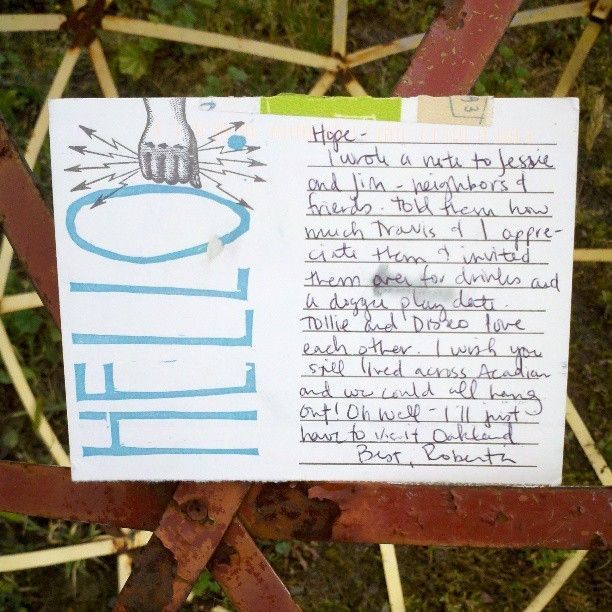 HELLO
Hope-
I wrote a note to Jessie
and Jim - neighbors &
friends. Told them how
much Travis & I appre-
ciate them & invited
them over for drinks and
a doggie play date.
Tollie and Disko love
each other. I wish you
still lived across Acadian
and we could all hang
out! Oh well - I'll just
have to visit Oakland
Best, Roberta